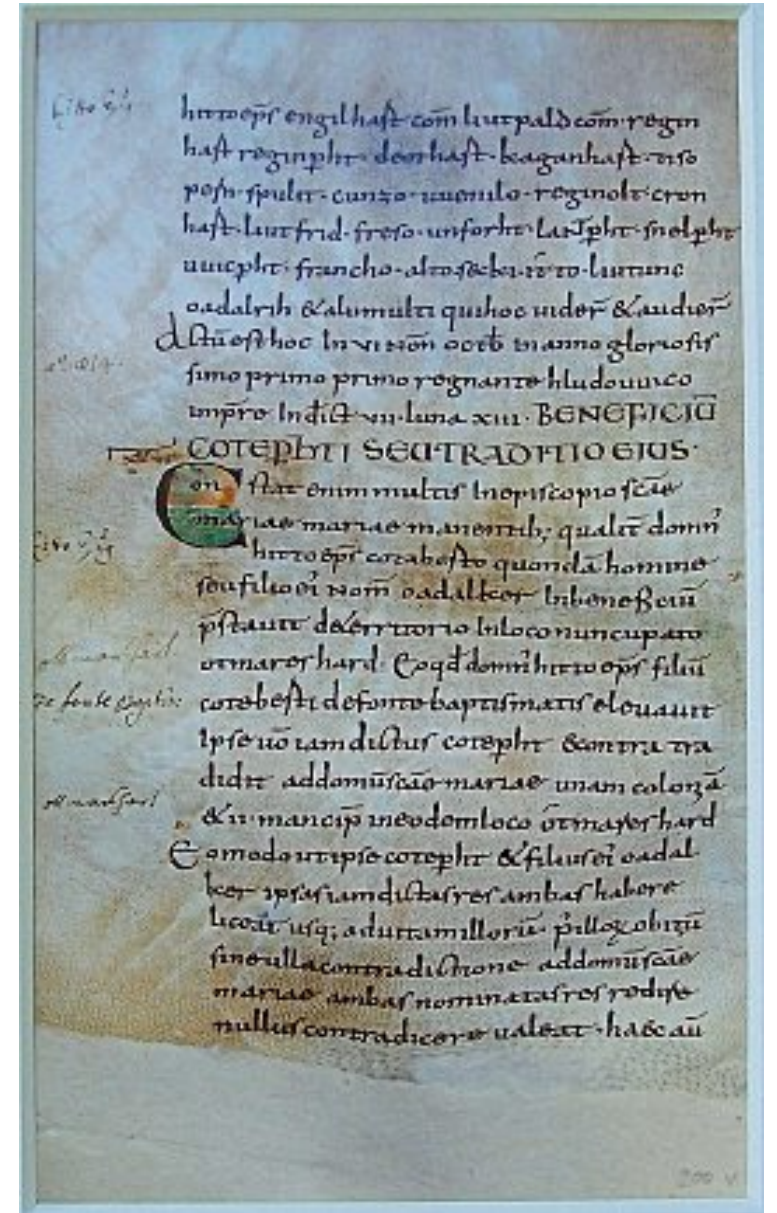 hitto ep̄s engilhast com̄ liutpald com̄ regin
hast reginp̄ht · deothast · kaganhast · tiso
cunzo · uuenilo · reginolt · cron
hast · liutfrid · freso · unforht · lantp̄ht · snelp̄ht
uuicp̄ht · francho · alto liutunc
oadalrih &alii multi qui hoc uider̄ &audier̄
Actū est hoc In vi Noñ octb̄ in anno gloriosis
simo primo primo regnante hludouuico
imp̄re Indict vii · luna xiii · BENEFICIŪ
COTEPHTI SEU TRADITIO EIUS ·
Constat enim multis In episcopio scāe
mariae mariae manentib; qualit̄ domn̄
hitto ep̄s cotabesto quondā homine
seu filio ei Nom̄ oadalker In beneficiū
p̄stauit de territorio In loco nuncupato
otmareshard · Eo qd̄ domn̄ hitto ep̄s filiū
cotebesti de fonte baptismatis eleuauit
Ipse uō iam dictus cotep̄ht &contra tra
didit ad domū scāe mariae unam coloniā
&ii · mancip̄ in eodem loco otmareshard
Eo modo ut ipse cotep̄ht &filius ei oadal
ker ipsas iam dictas res ambas habere
liceat usq; ad uitam illorū · p̄ illoꝝ obitū
sine ulla contradictione ad domū scāe
mariae ambas nominatas res redire
nullus contradicere ualeat · haec aū
200 v